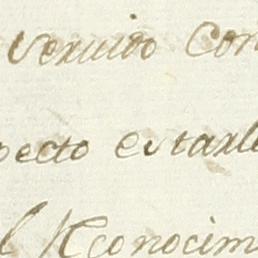 servido Con
pecto estarle
l Reconocim